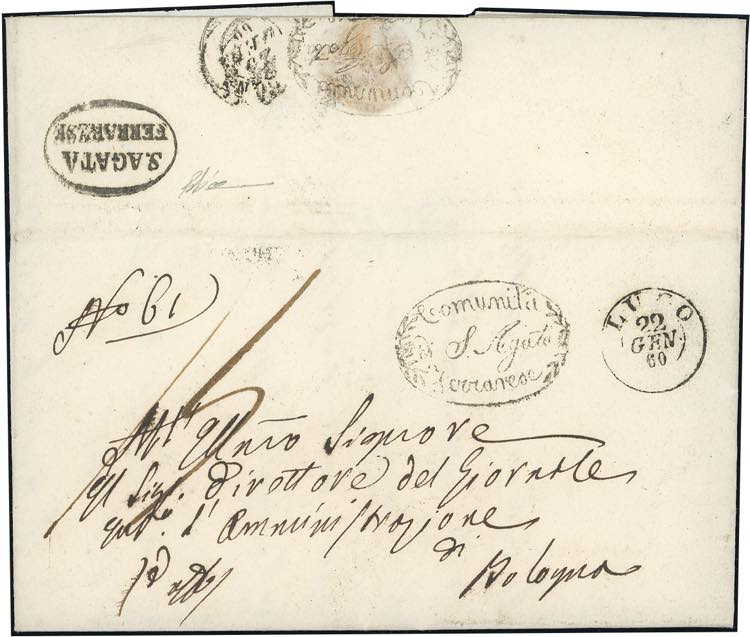 Comunità
S. Agata
S. AGATA
FERRARESE
No 61
Comunità
S. Agata
Ferrarese
LUGO
22
GEN
60
All' Signore
Il Sig. Direttore del Giornale
l'Amministrazione
di
Bologna